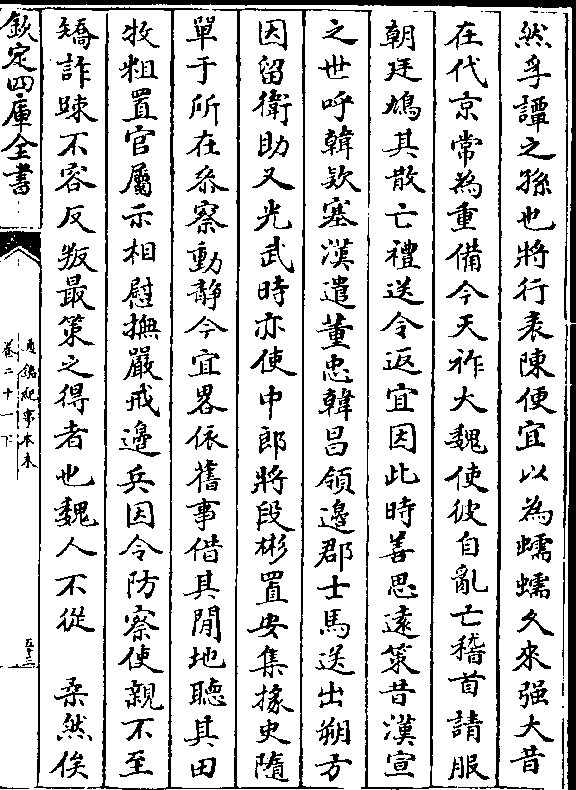 然孚譚之孫也將行表陳便宜以為蠕蠕久來强大昔
在代京常為重備今天祚大魏使彼自亂亡稽首請服
朝廷鳩其散亡禮送令返宜因此時善思遠策昔漢宣
之世呼韓欵塞漢遣董忠韓昌領邊郡士馬送出朔方
因留衛助又光武時亦使中郎將段彬置安集掾史隨
單于所在叅察動靜今宜畧依舊事借其閒地聽其田
牧粗置官屬示相慰撫嚴戒邊兵因令防察使親不至
矯詐踈不容反叛最策之得者也魏人不從　柔然俟
欽定四庫全書
通鑑紀事本末
卷二十一下
五十二